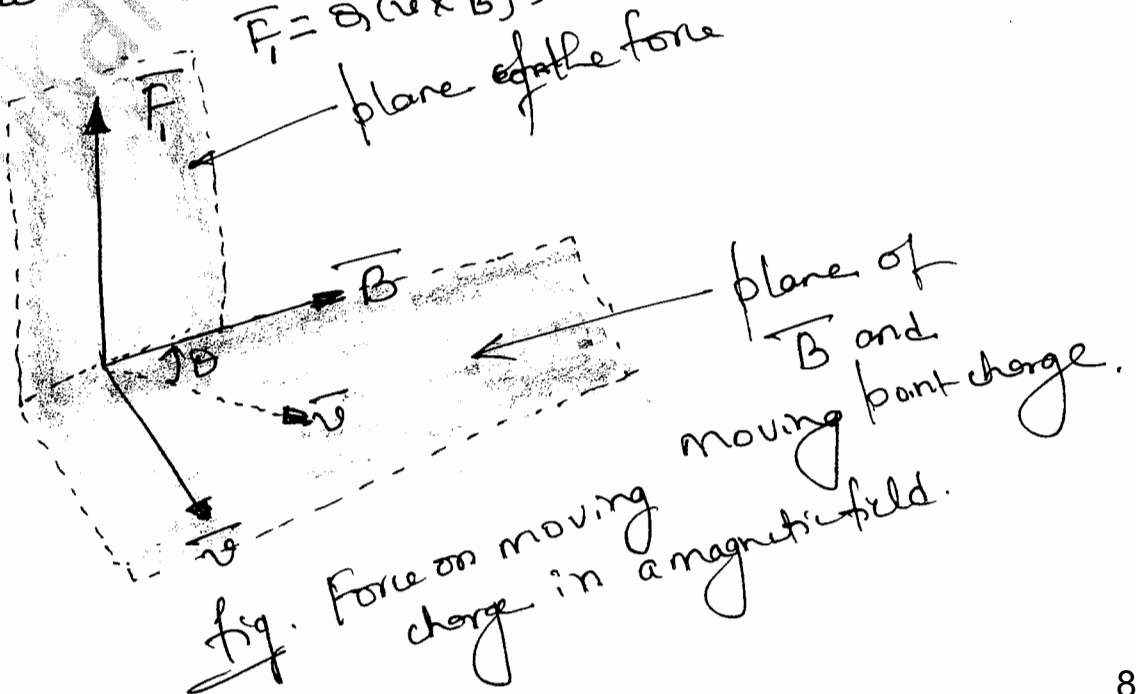 F̅₁ = Q(v × B)
plane of the force
F̅₁
B̅
θ
v̅
v̅
plane of
B̅ and
moving point charge.
fig. Force on moving
charge in a magnetic field.
8